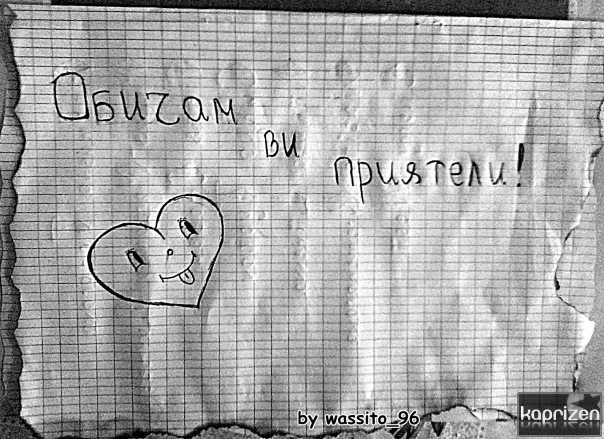 Обичам
ви
приятели!
by wassito_96
kaprizen